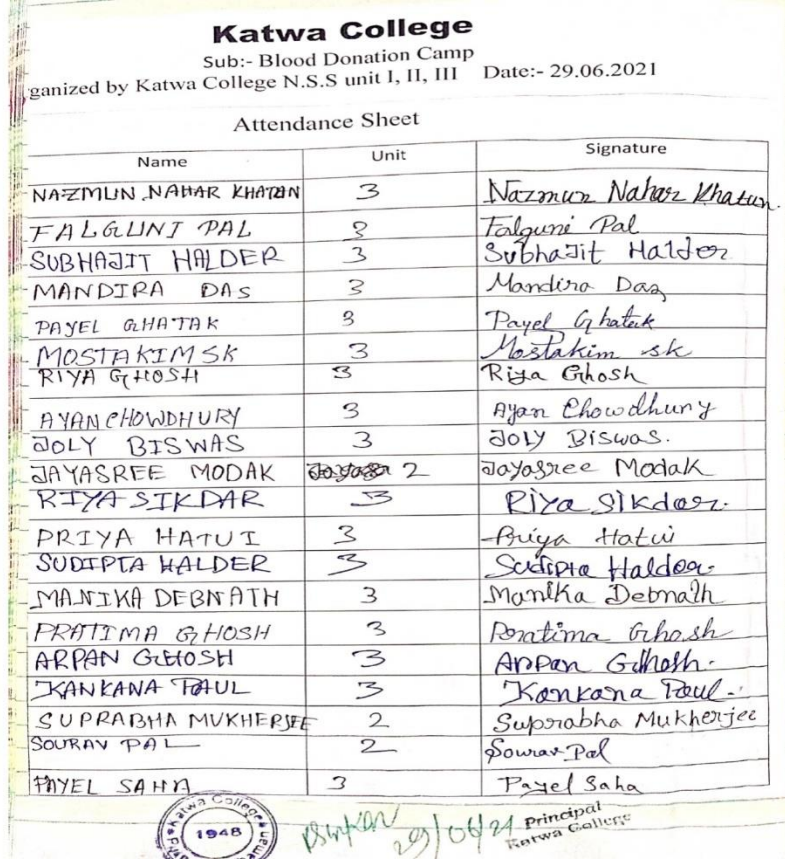 Katwa College
Sub:- Blood Donation Camp
ganized by Katwa College N.S.S unit I, II, III Date:- 29.06.2021
Attendance Sheet
Name Unit Signature
NAZMUN NAHAR KHATUN 3 Nazmun Nahar Khatun.
FALGUNI PAL 3 Falguni Pal
SUBHAJIT HALDER 3 Subhajit Halder
MANDIRA DAS 3 Mandira Das
PAYEL GHATAK 3 Payel Ghatak
MOSTAKIM SK 3 Mostakim sk
RIYA GHOSH 3 Riya Ghosh
AYAN CHOWDHURY 3 Ayan Chowdhury
JOLY BISWAS 3 JOLY Biswas.
JAYASREE MODAK 2 Jayasree Modak
RIYA SIKDAR 3 Riya Sikdar.
PRIYA HATUI 3 Priya Hatui
SUDIPTA HALDER 3 Sudipta Halder.
MANIKA DEBNATH 3 Manika Debnath
PRATIMA GHOSH 3 Pratima Ghosh
ARPAN GHOSH 3 Arpan Ghosh.
KANKANA PAUL 3 Kankana Paul.
SUPRABHA MUKHERJEE 2 Suprabha Mukherjee
SOURAV PAL 2 Sourav Pal
PAYEL SAHA 3 Payel Saha
Katwa College
1948
29/06/21
Principal
Katwa College